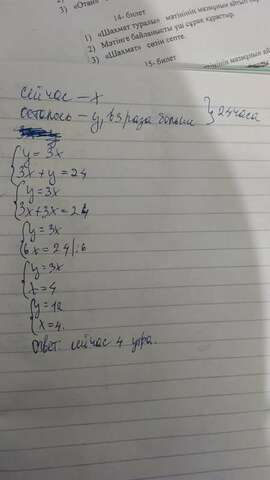 3) «Отан»
14- билет
1) «Шахмат туралы» мәтінінің мазмұнын айтып
2) Мәтінге байланысты үш сұрақ құрастыр.
3) «Шахмат» сөзін септе.
15- билет
мәтінінің мазмұнын ай
сейчас – x
осталось – y, в 3 раза больше } 24 часа
{ y = 3x
3x + y = 24
{ y = 3x
3x + 3x = 24
{ y = 3x
6x = 24 |:6
{ y = 3x
x = 4
{ y = 12
x = 4.
ответ: сейчас 4 утра.